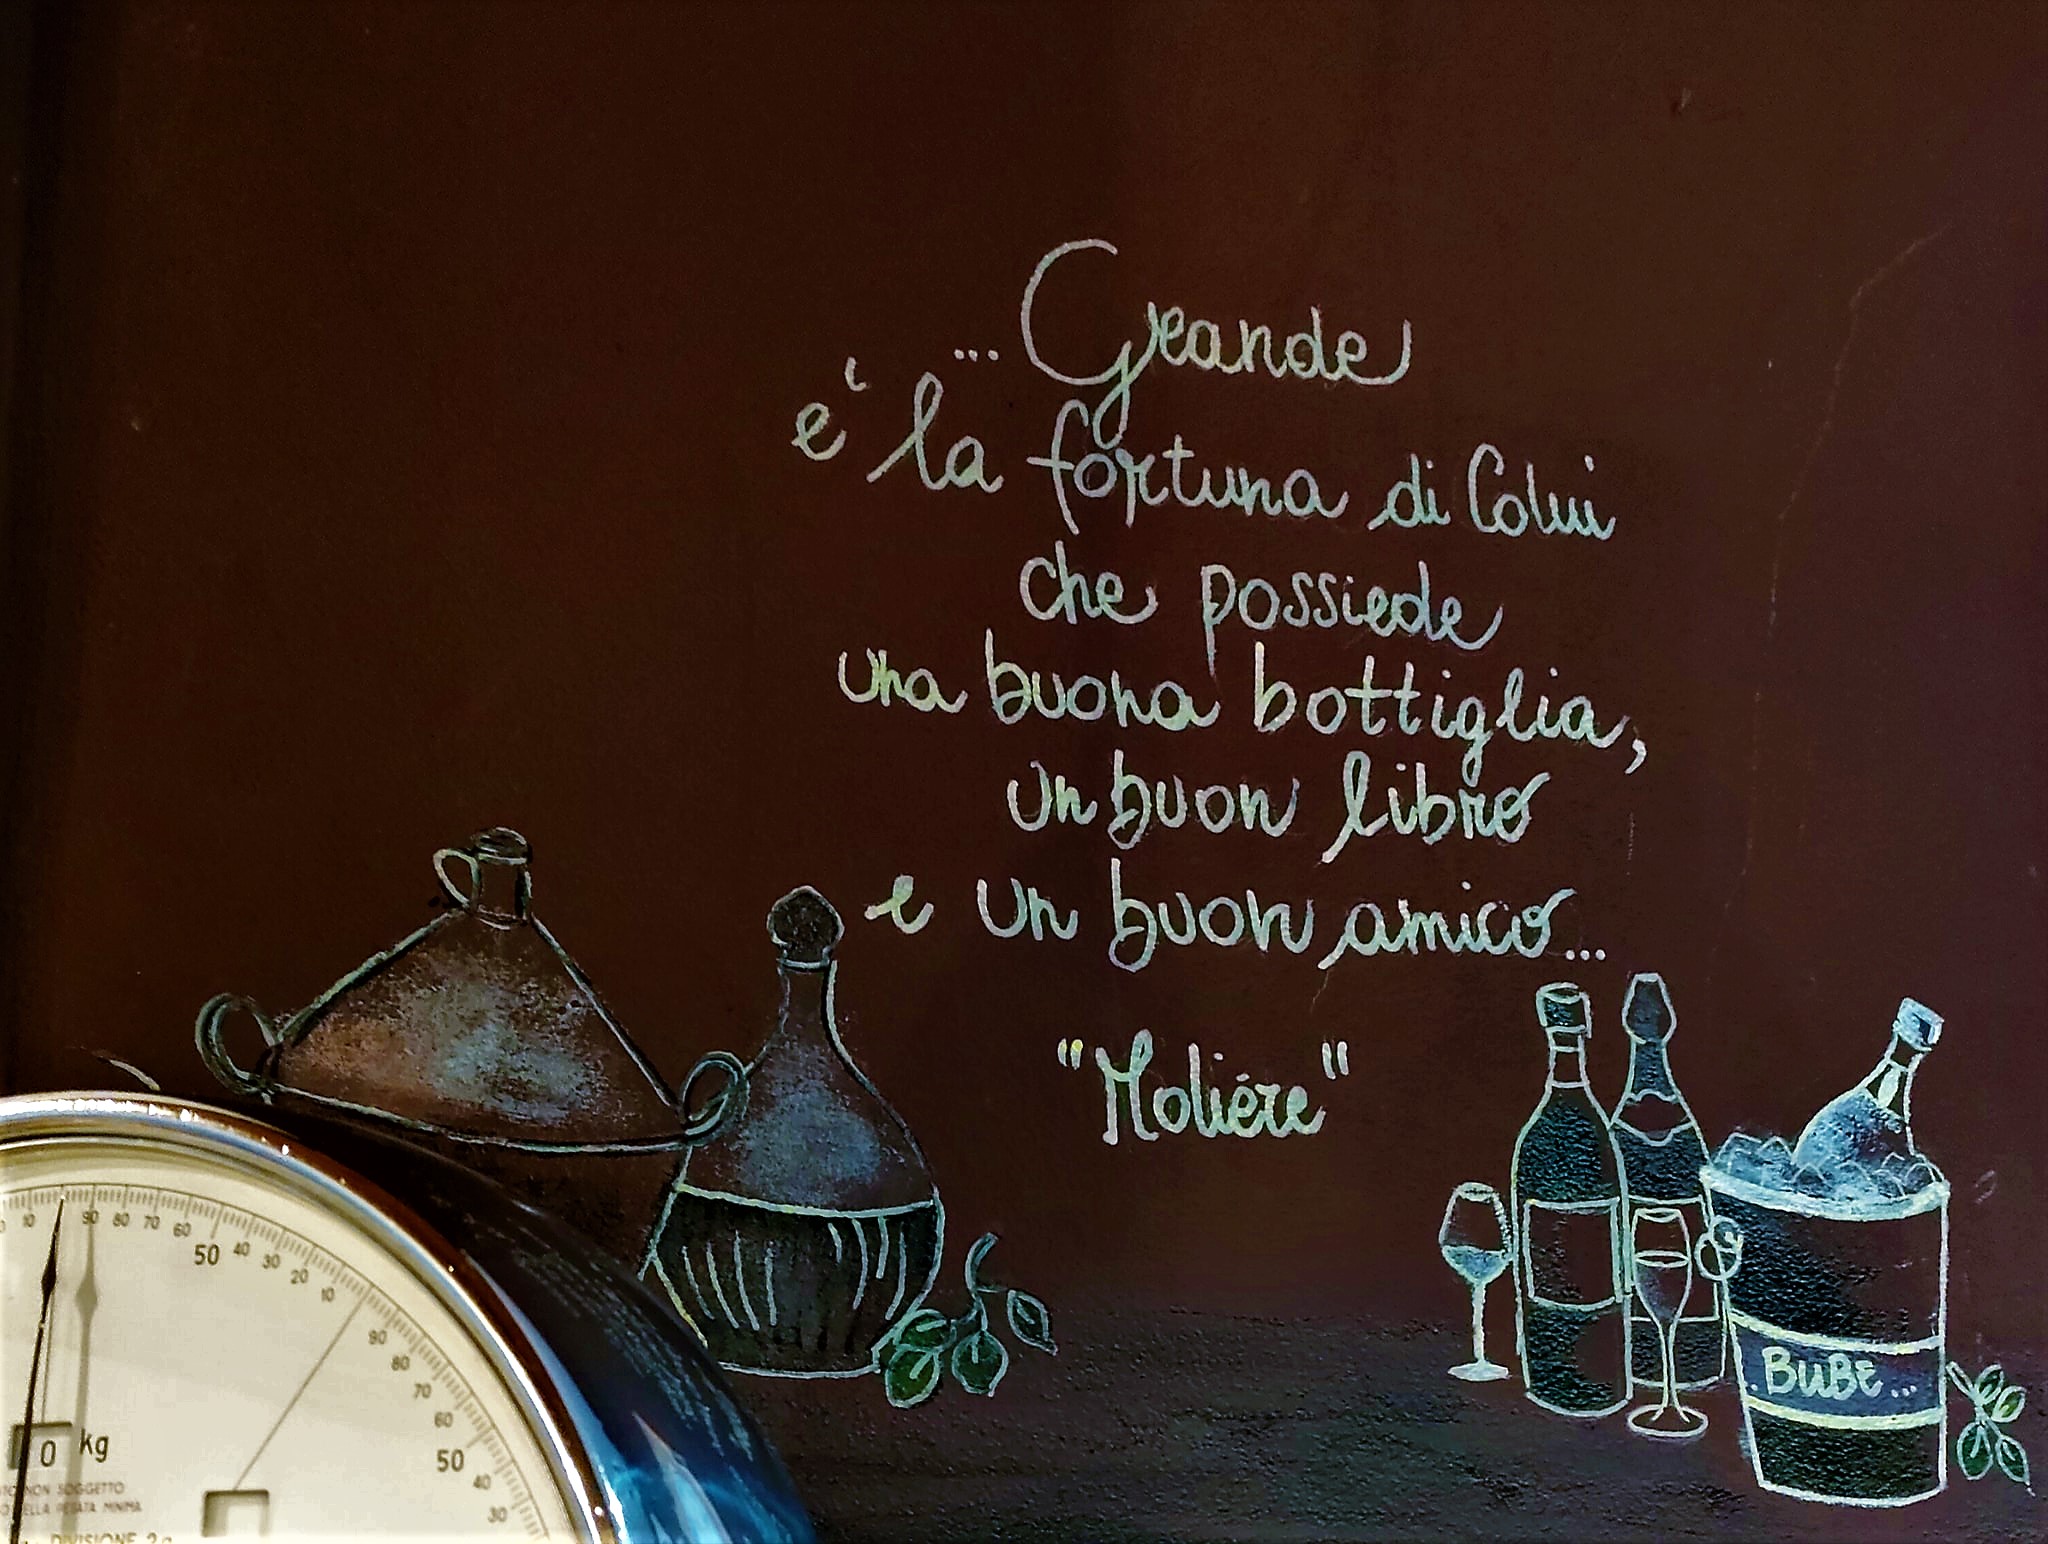 ... Grande
e' la fortuna di Colui
che possiede
una buona bottiglia,
un buon libro
e un buon amico...
"Moliére"
BUBE...
10 90 80 70 60 50 40 30 20 10
90 80 70 60 50 40 30
0 kg
NON SOGGETTO
DELLA PESATA MINIMA
DIVISIONE 2g